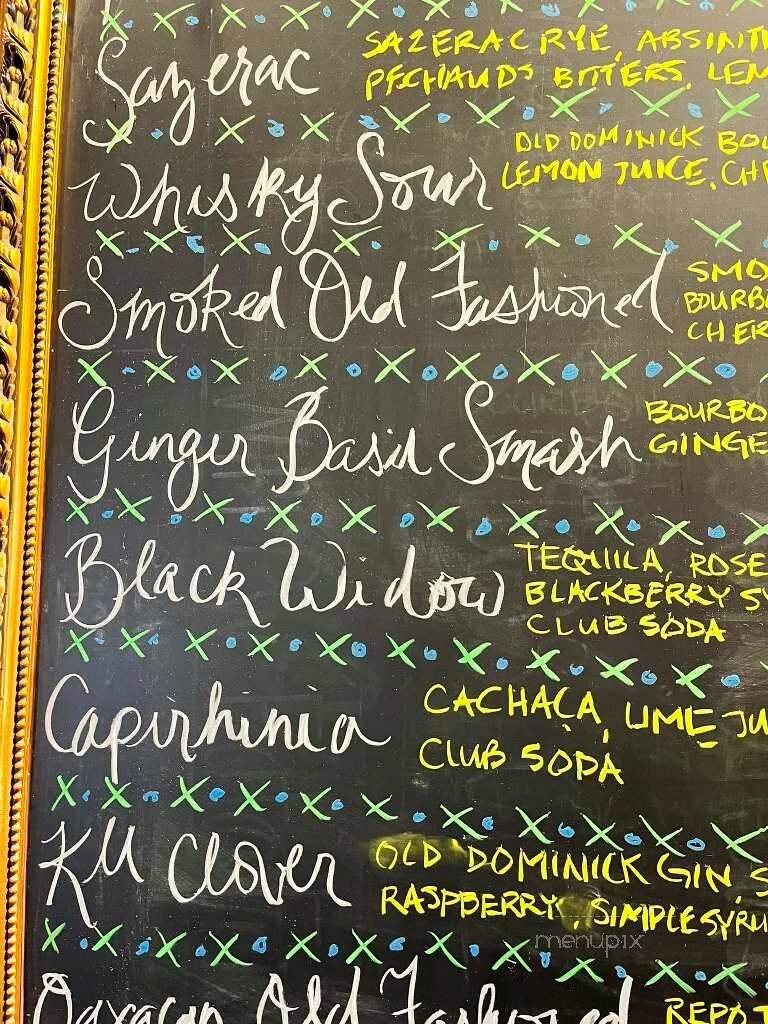 Sazerac
SAZERAC RYE, ABSINTH
PECHAUDS BITTERS, LEM
Whisky Sour
OLD DOMINICK BOU
LEMON JUICE, CHE
Smoked Old Fashioned
SMO
BOURBO
CHER
Ginger Basil Smash
BOURBO
GINGE
Black Widow
TEQUILA, ROSE
BLACKBERRY SY
CLUB SODA
Capirhinia
CACHAÇA, LIME JU
CLUB SODA
KU Clover
OLD DOMINICK GIN, S
RASPBERRY, SIMPLE SYRU
menupix
Oaxacan Old Fashioned
REPOT